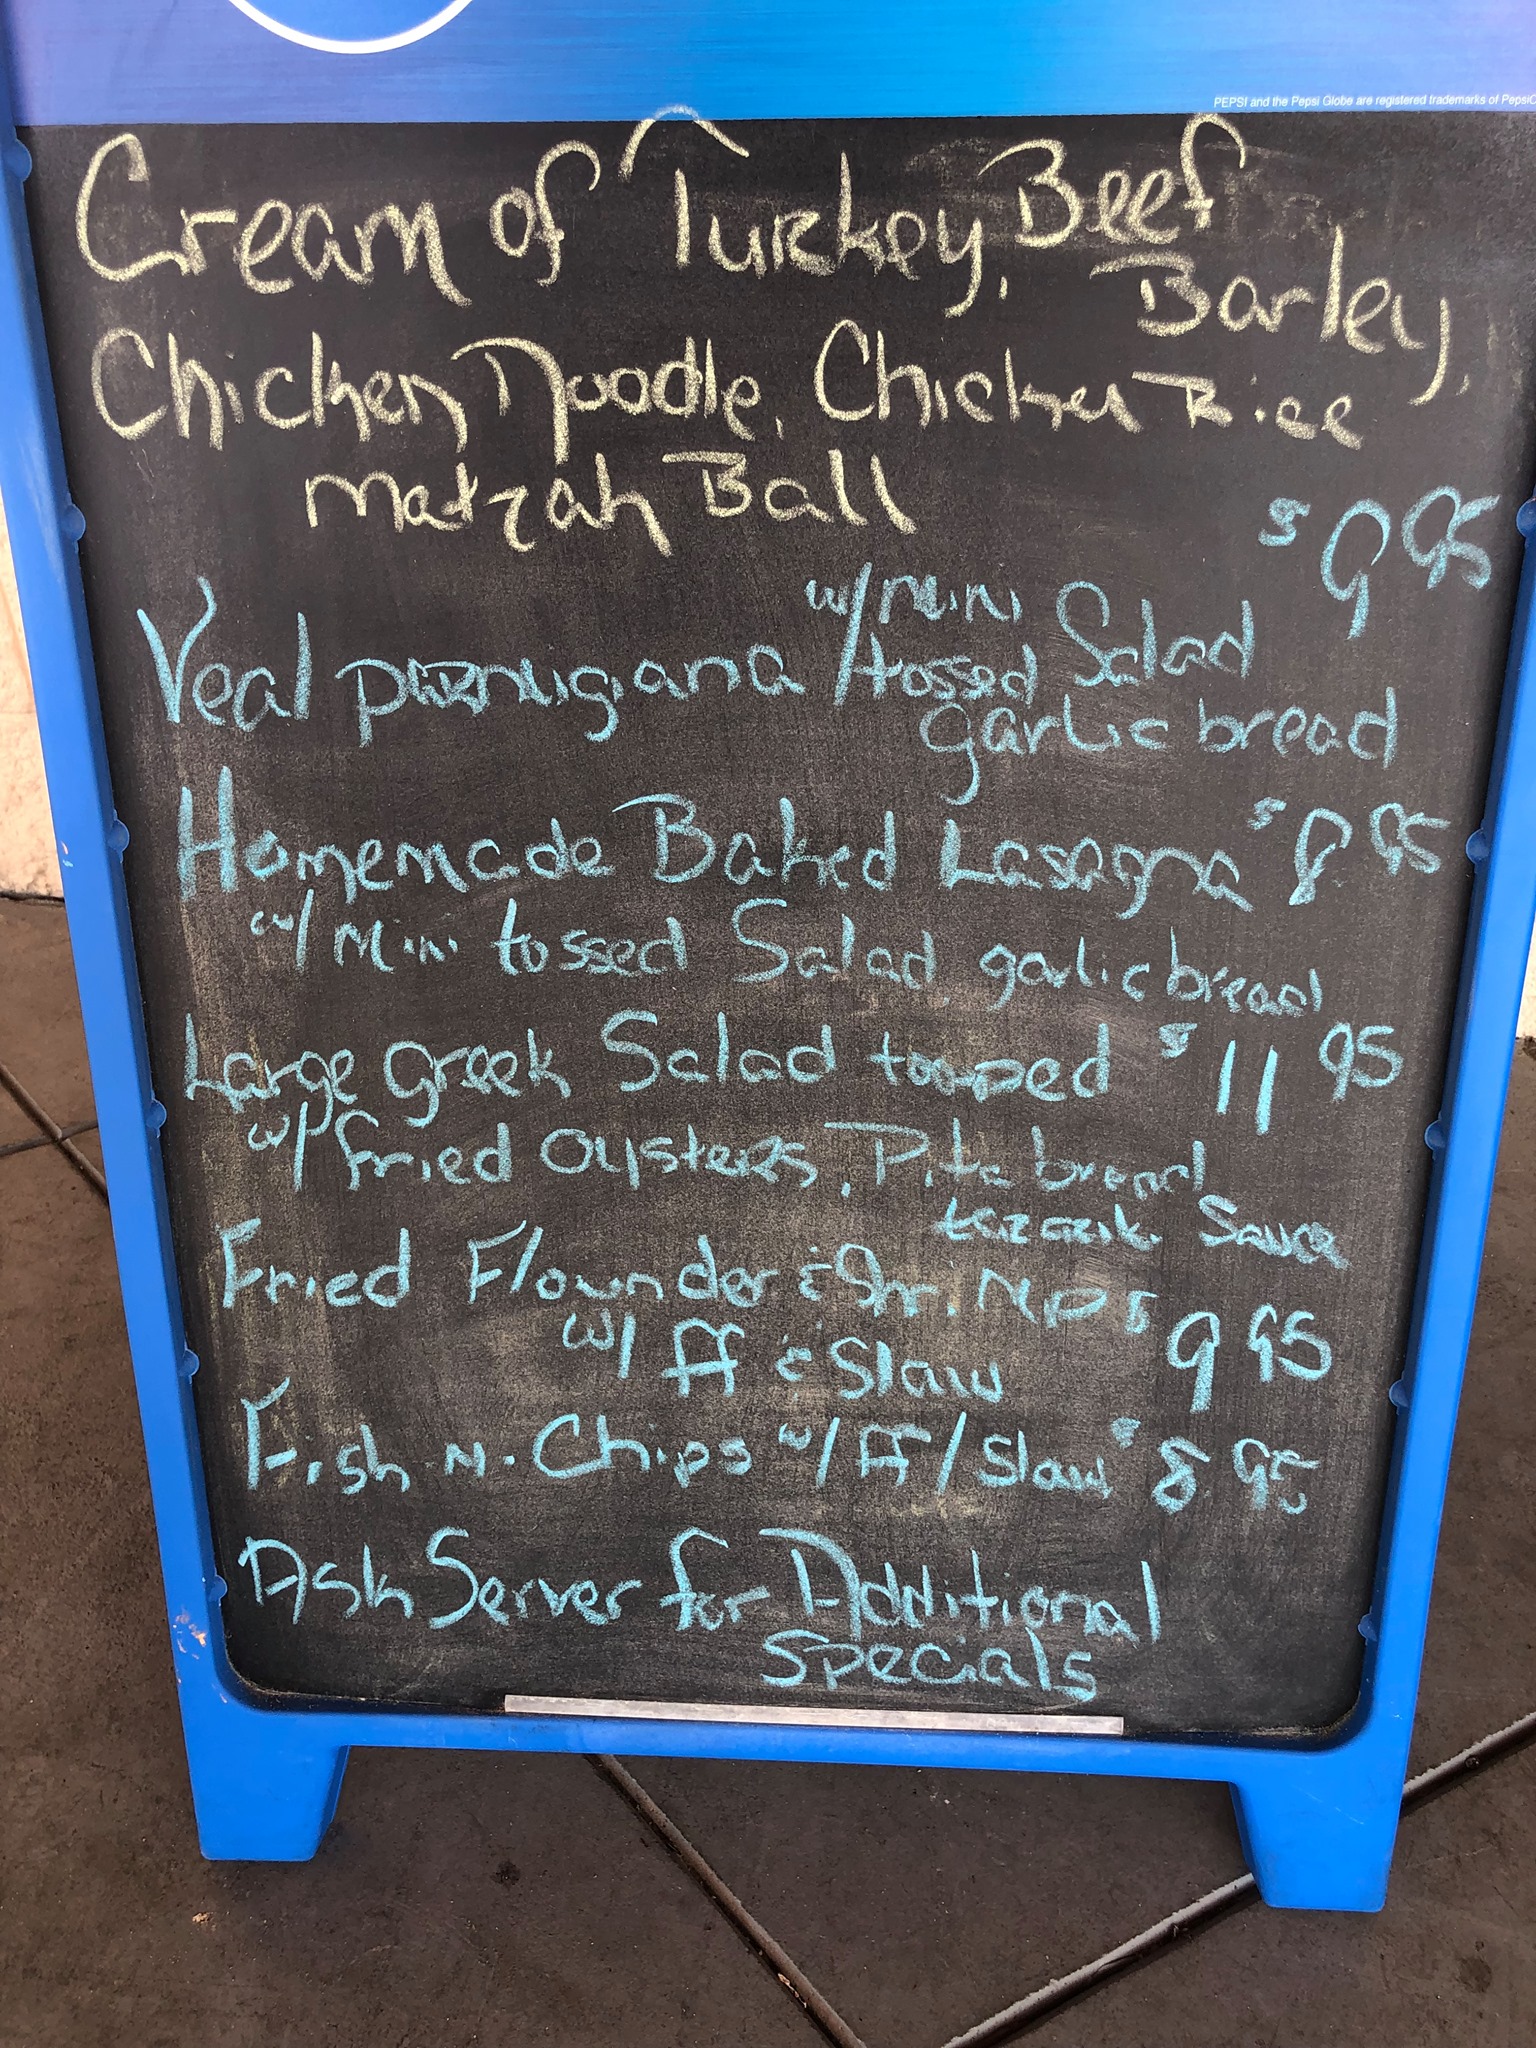 PEPSI and the Pepsi Globe are registered trademarks of PepsiC
Cream of Turkey, Beef
Barley,
Chicken Noodle, Chicken Rice
Matzah Ball
$9 95
w/ Mini
Veal parmigiana / tossed Salad
garlic bread
Homemade Baked Lasagna $8 95
w/ Mini tossed Salad garlic bread
Large greek Salad topped $11 95
w/ fried Oysters, Pita bread
Sauce
Fried Flounder & Shrimp $9 95
w/ ff & Slaw
Fish N. Chips w/ ff / Slaw $8 95
Ask Server for Additional
Specials